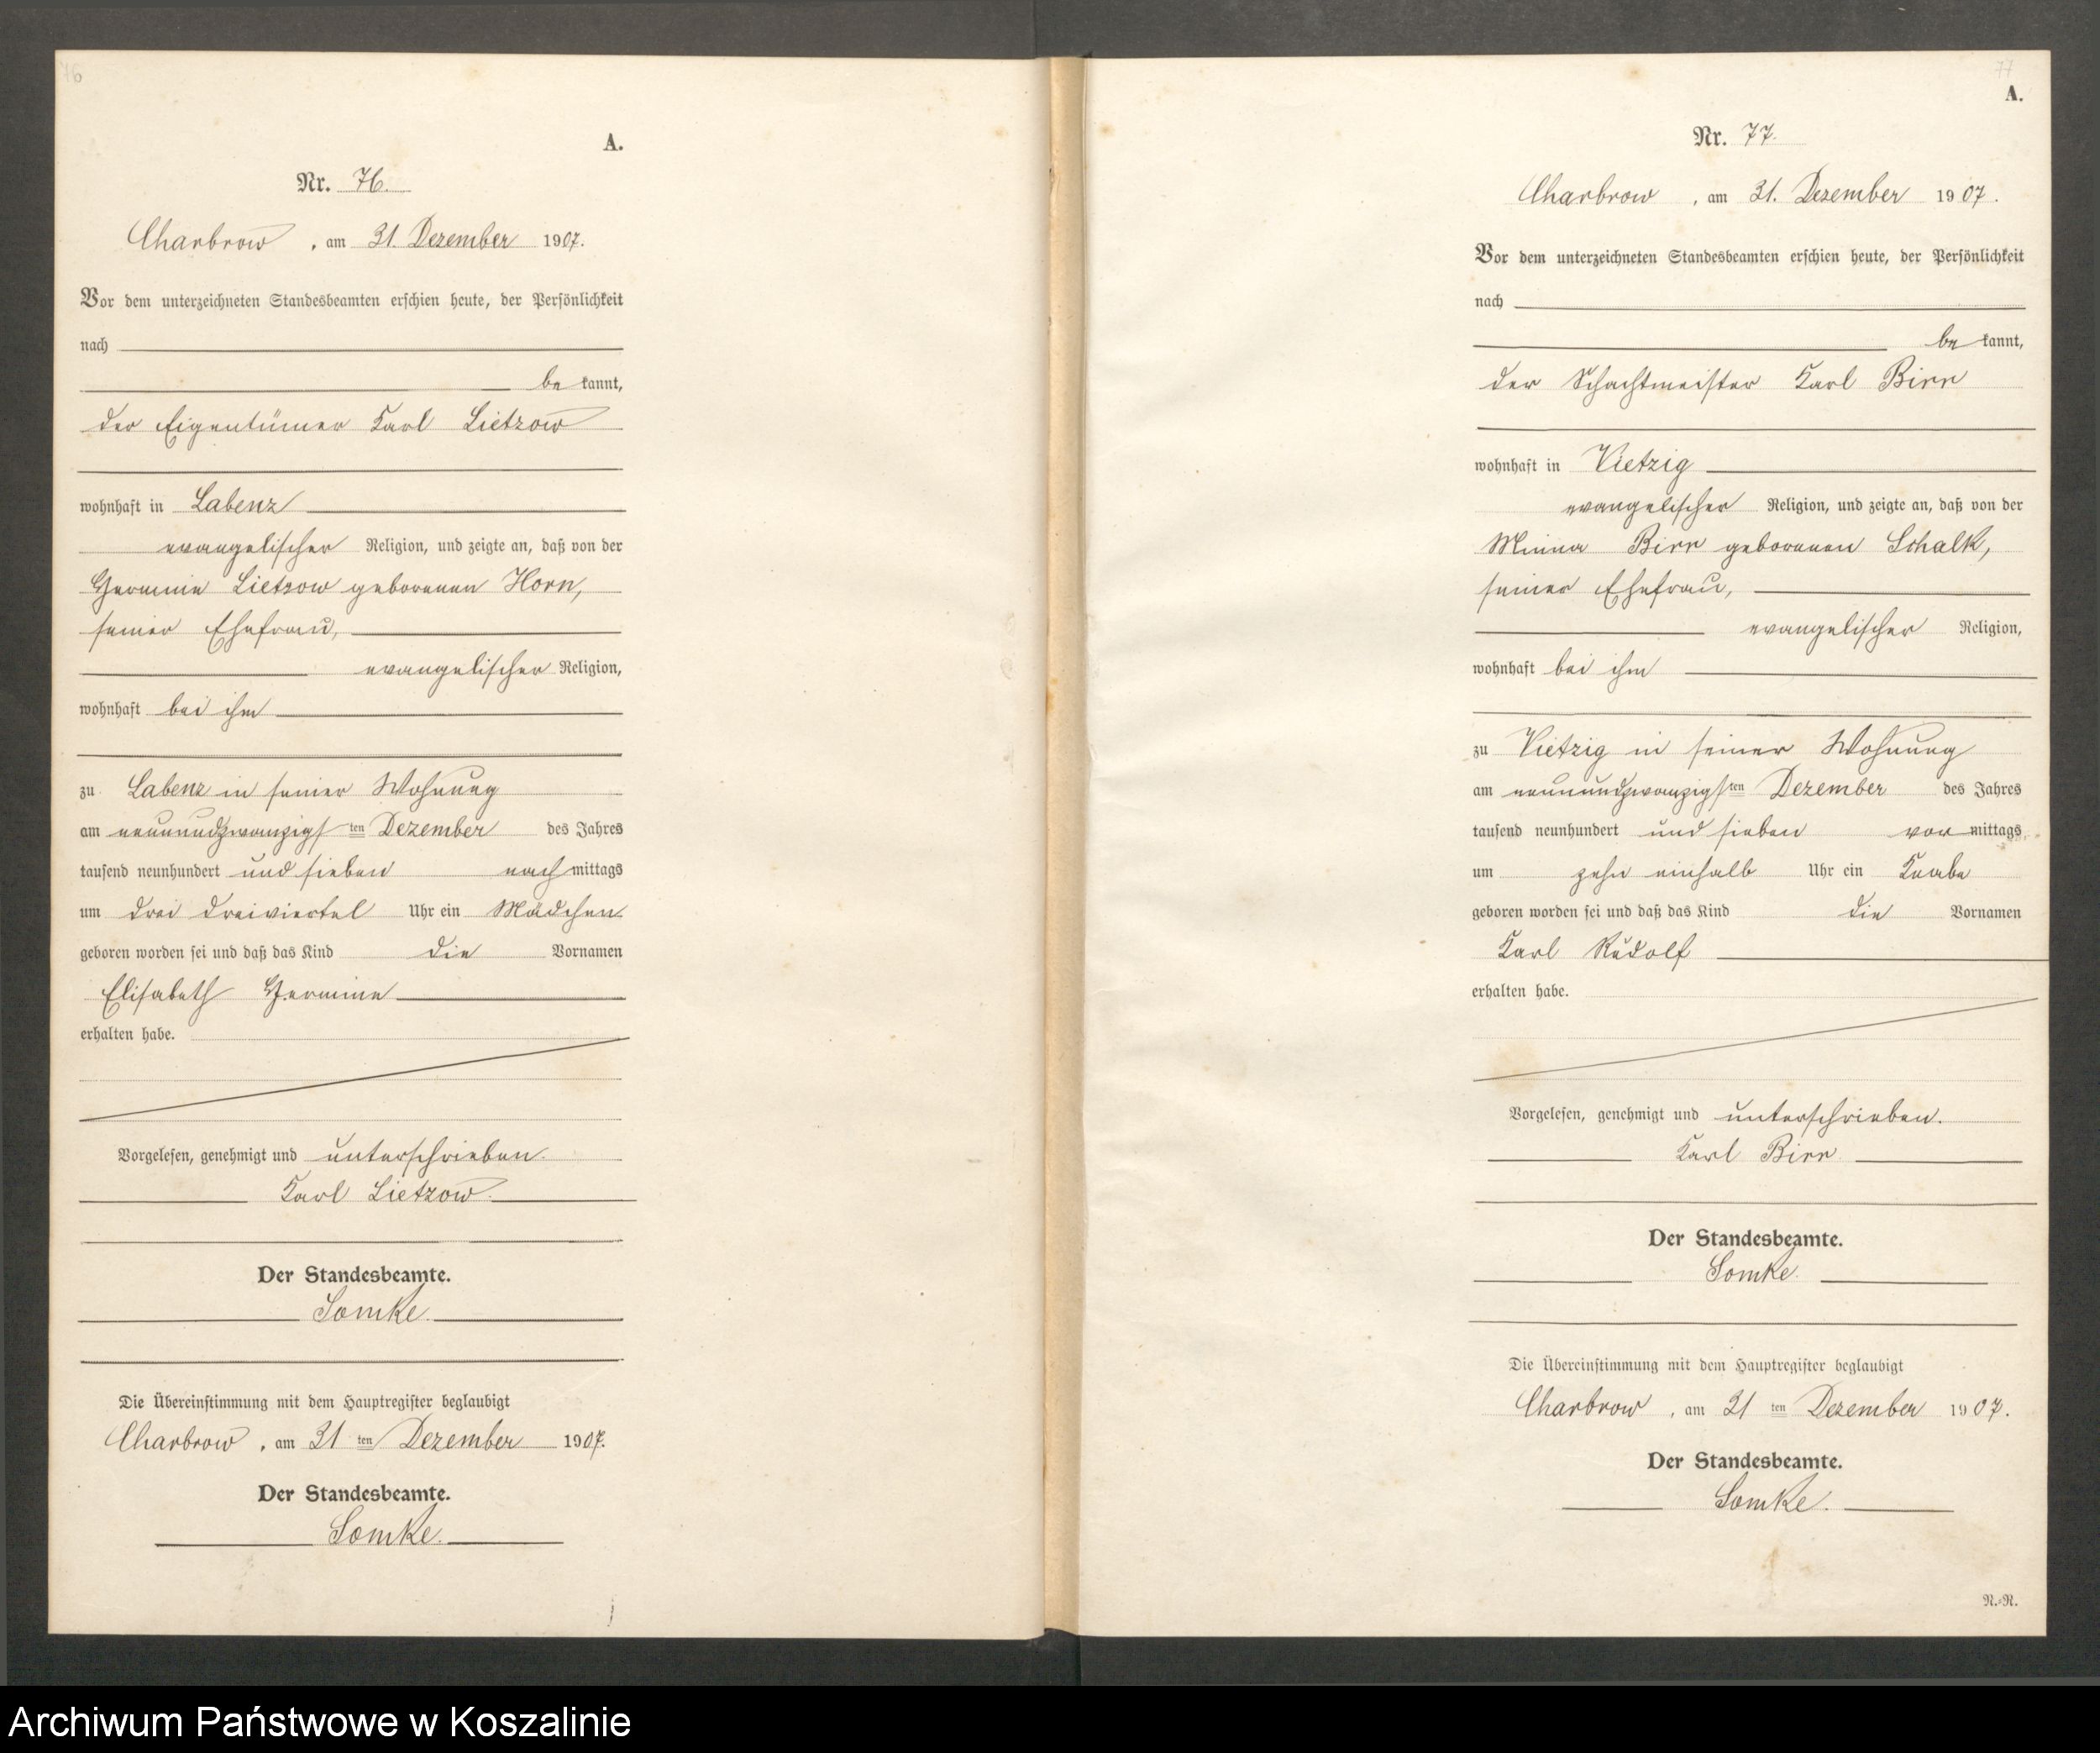 76
A.
Nr. 76.
Charbrow, am 31. Dezember 1907.
Vor dem unterzeichneten Standesbeamten erschien heute, der Persönlichkeit
nach
be kannt,
der Eigentümer Karl Lietzow
wohnhaft in Labenz
evangelischer Religion, und zeigte an, daß von der
Hermine Lietzow geborenen Horn,
seiner Ehefrau,
evangelischer Religion,
wohnhaft bei ihm
zu Labenz in seiner Wohnung
am neunundzwanzigsten Dezember des Jahres
tausend neunhundert und sieben nachmittags
um drei dreiviertel Uhr ein Mädchen
geboren worden sei und daß das Kind die Vornamen
Elisabeth Hermine
erhalten habe.
Vorgelesen, genehmigt und unterschrieben.
Karl Lietzow.
Der Standesbeamte.
Somke.
Die Übereinstimmung mit dem Hauptregister beglaubigt
Charbrow, am 31 ten Dezember 1907.
Der Standesbeamte.
Somke.
77
A.
Nr. 77.
Charbrow, am 31. Dezember 1907.
Vor dem unterzeichneten Standesbeamten erschien heute, der Persönlichkeit
nach
be kannt,
der Schachtmeister Karl Birr
wohnhaft in Vietzig
evangelischer Religion, und zeigte an, daß von der
Minna Birr geborenen Schalk,
seiner Ehefrau,
evangelischer Religion,
wohnhaft bei ihm
zu Vietzig in seiner Wohnung
am neunundzwanzigsten Dezember des Jahres
tausend neunhundert und sieben vormittags
um zehn einhalb Uhr ein Knabe
geboren worden sei und daß das Kind die Vornamen
Karl Rudolf
erhalten habe.
Vorgelesen, genehmigt und unterschrieben.
Karl Birr.
Der Standesbeamte.
Somke.
Die Übereinstimmung mit dem Hauptregister beglaubigt
Charbrow, am 31 ten Dezember 1907.
Der Standesbeamte.
Somke.
N.-R.
Archiwum Państwowe w Koszalinie